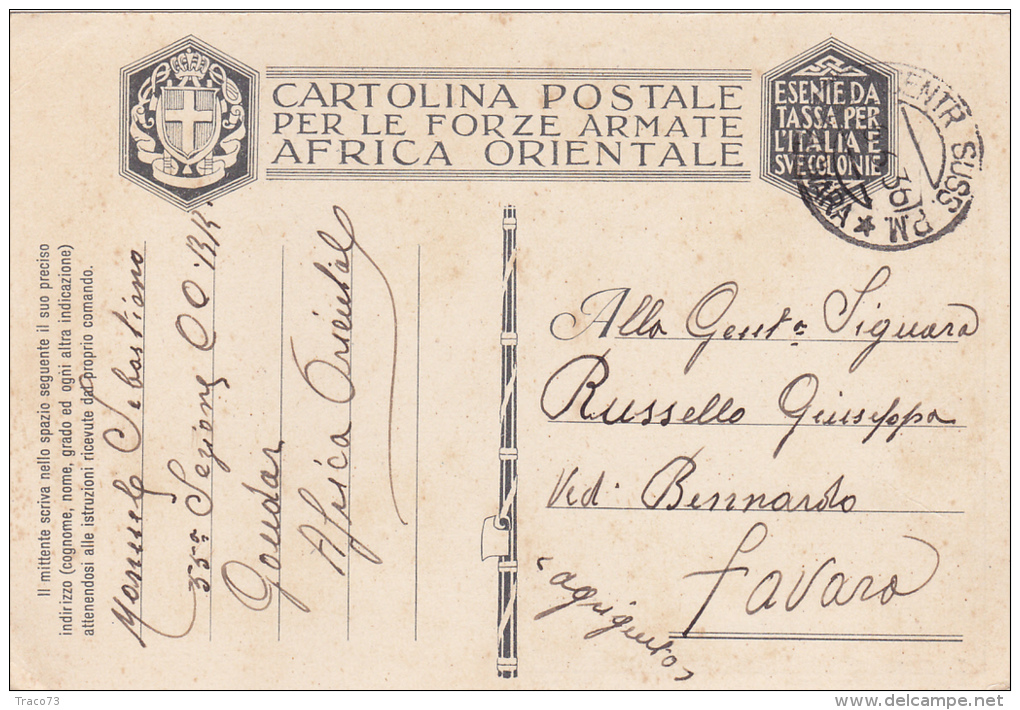 CARTOLINA POSTALE
PER LE FORZE ARMATE
AFRICA ORIENTALE
ESENTE DA
TASSA PER
L'ITALIA E
SVE COLONIE
ENTR SUSS
P.M.
Il mittente scriva nello spazio seguente il suo preciso
indirizzo (cognome, nome, grado ed ogni altra indicazione)
attenendosi alle istruzioni ricevute dal proprio comando.
Sebastiano
55ª Sezione
Gondar
Africa Orientale
Alla Gent.a Signora
Russello Giuseppa
Ved. Bennardo
Favara
(agrigento)
Traco73
delcampe.net